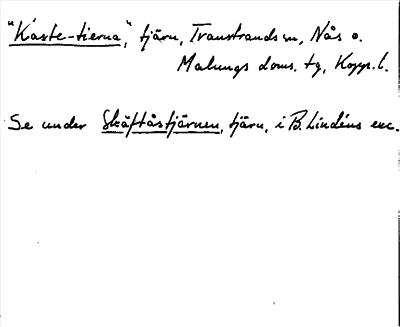 "Káste-tierna", tjärn, Transtrands sn, Nås o.
Malungs doms. tg, Kopp. l.
Se under Skäftåstjärnen, tjärn, i B. Lindéns exc.